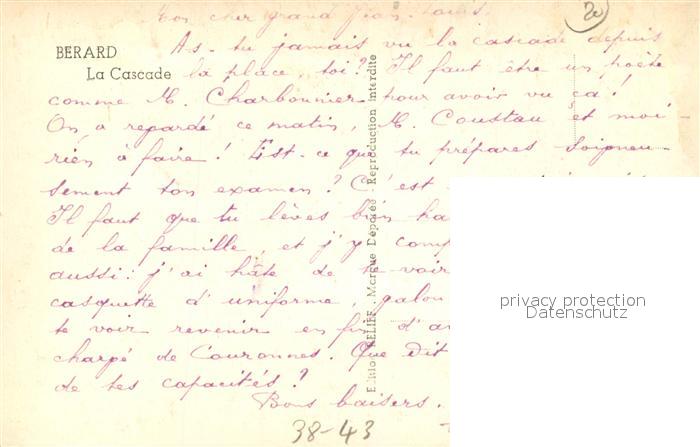 Mon cher grand Jean-Louis.
BERARD
La Cascade
As-tu jamais vu la cascade depuis
la place, toi? Il faut être un poète
comme M. Charbonnier pour avoir vu ça!
On a regardé ce matin, M. Coustau et moi -
rien à faire! Est-ce que tu prépares soigneu-
sement ton examen? C'est
Il faut que tu lèves bien ha
de la famille, et j'y comp
aussi: j'ai hâte de te voir
casquette d'uniforme, galon
te voir revenir en fin d'an
chargé de Couronnes. Que dit
de tes capacités?
Bons baisers.
Editions RELIEF. Marque Déposée. Reproduction Interdite
20
38-43
privacy protection
Datenschutz